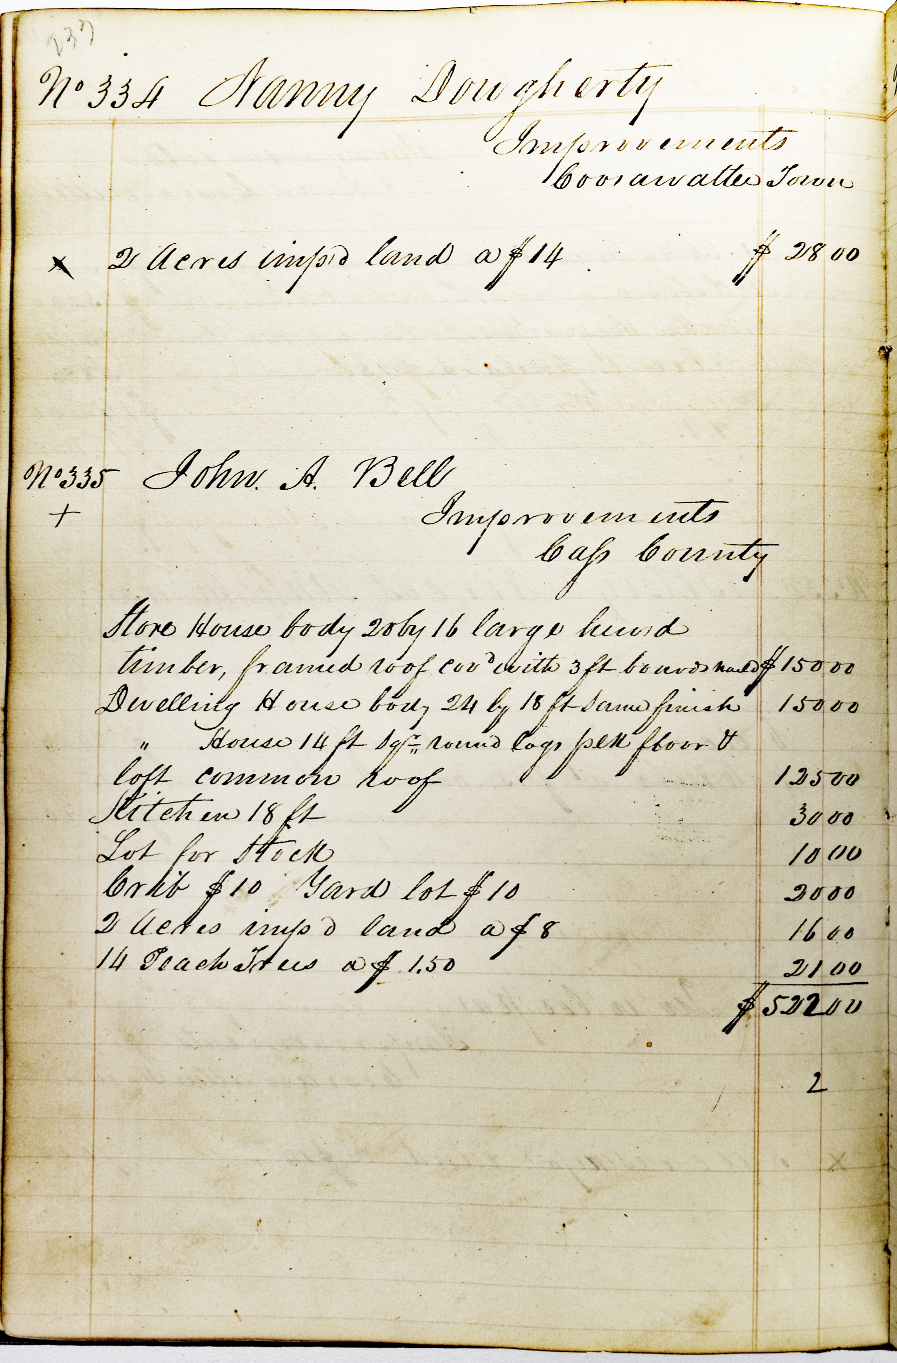 237
No 334 Nanny Dougherty
Improvements
Coosawattee Town
x 2 Acres imp'd land a $14 $ 28 00
No 335 John. A. Bell
+ Improvements
Cass County
Store House body 20 by 16 large hewd
timber, framed roof cov'd with 3 ft boards nailed $150 00
Dwelling House body 24 by 18 ft same finish 150 00
" House 14 ft sqr round logs plk floor &
loft common roof 125 00
Kitchen 18 ft 30 00
Lot for Stock 10 00
Crib $10 Yard lot $10 20 00
2 Acres imp'd land a $ 8 16 00
14 Peach Trees a $ 1.50 21 00
$522 00
2